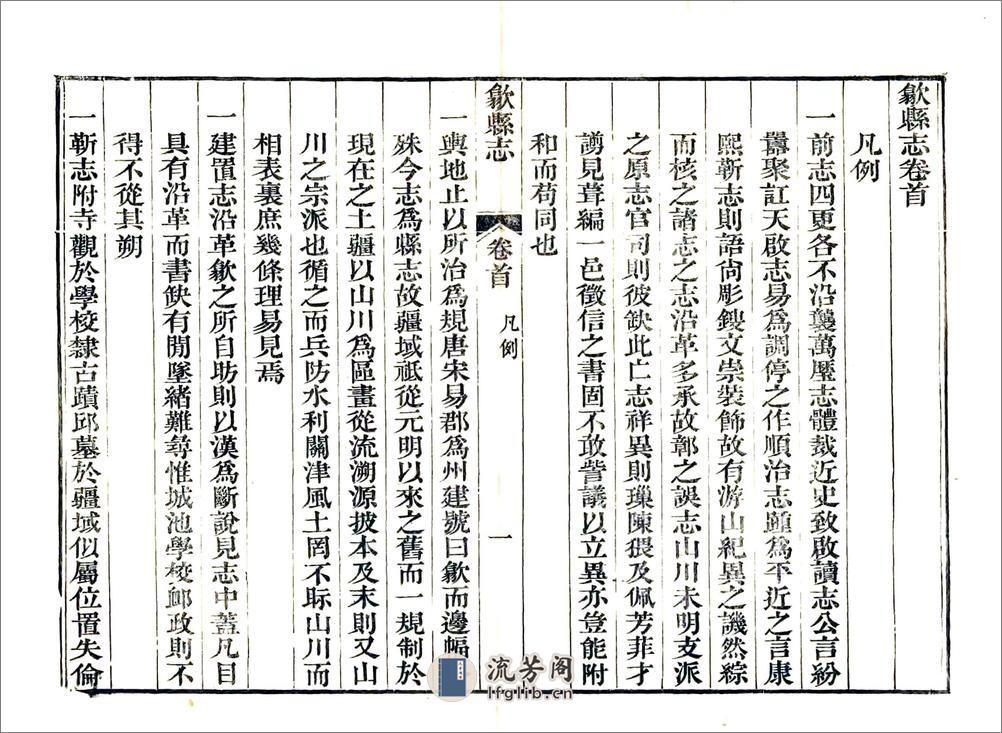 歙縣志卷首
凡例
一前志四更各不沿襲萬歷志體裁近史致啟讀志公言紛
囂聚訌天啟志易爲調停之作順治志題爲平近之言康
熙靳志則語尙彫鎪文崇裝飾故有游山紀異之譏然綜
而核之諸志之志沿革多承故鄣之誤志山川未明支派
之原志官司則彼缺此亡志祥異則璅陳猥及佩芳菲才
謭見葺編一邑徵信之書固不敢訾議以立異亦豈能附
和而苟同也
歙縣志
卷首
凡例
一
一輿地止以所治爲規唐宋易郡爲州建號曰歙而邊幅
殊今志爲縣志故疆域祗從元明以來之舊而一規制於
現在之土疆以山川爲區畫從流溯源披本及末則又山
川之宗派也循之而兵防水利關津風土罔不眎山川而
相表裏庶幾條理易見焉
一建置志沿革歙之所自昉則以漢爲斷說見志中蓋凡目
具有沿革而書缺有閒墜緒難尋惟城池學校郵政則不
得不從其朔
一靳志附寺觀於學校隸古蹟邱墓於疆域似屬位置失倫
流芳阁
lfglib.cn